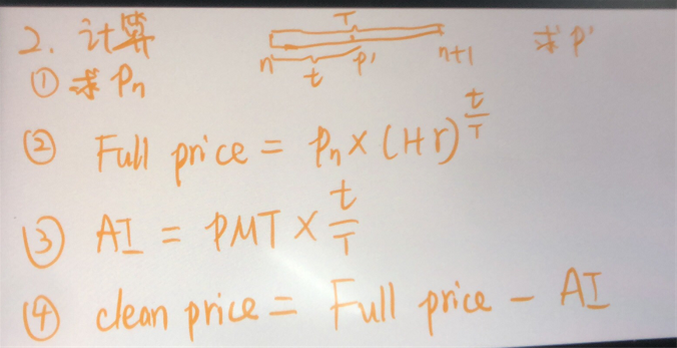 2. 计算
T
n t P' n+1 求P'
① 求Pn
② Full price = Pn × (1+r)^(t/T)
③ AI = PMT × t/T
④ clean price = Full price - AI